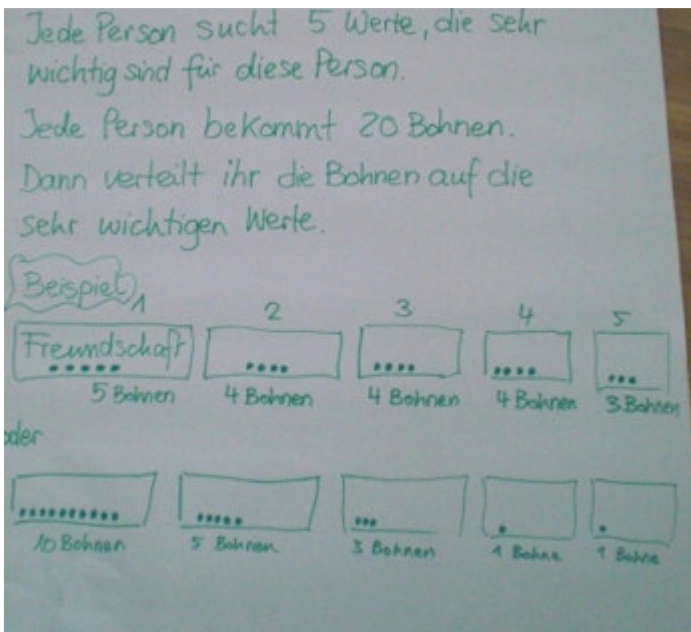 Jede Person sucht 5 Werte, die sehr
wichtig sind für diese Person.
Jede Person bekommt 20 Bohnen.
Dann verteilt ihr die Bohnen auf die
sehr wichtigen Werte.
Beispiel
1 2 3 4 5
Freundschaft
5 Bohnen 4 Bohnen 4 Bohnen 4 Bohnen 3 Bohnen
oder
10 Bohnen 5 Bohnen 3 Bohnen 1 Bohne 1 Bohne